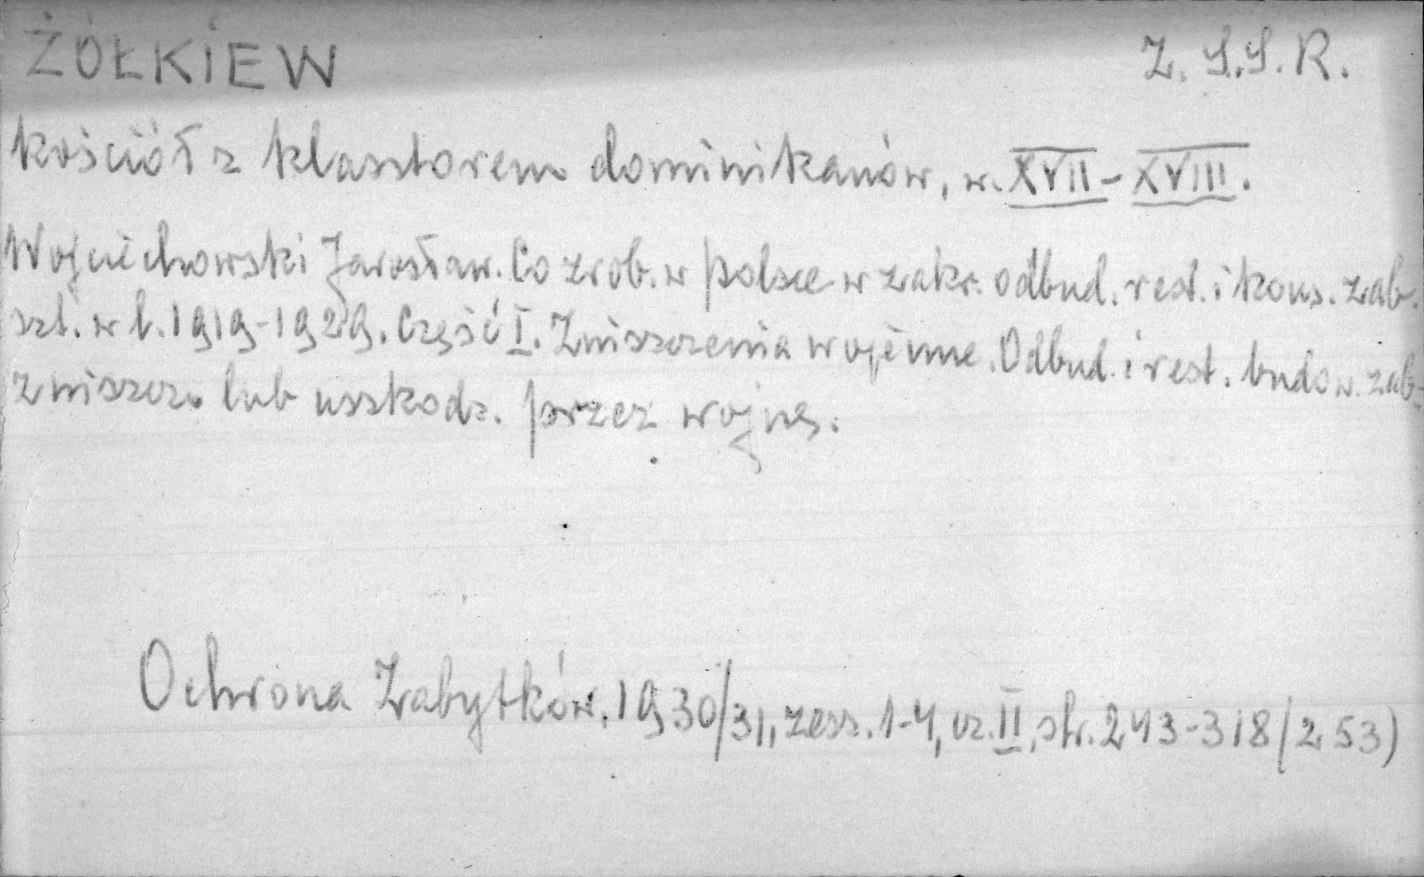 ŻÓŁKIEW Z.S.S.R.
kościół z klasztorem dominikanów, w. XVII-XVIII.
Wojciechowski Jarosław. Co zrob. w Polsce w zakr. odbud. rest. i kons. zab.
szt. w l. 1919-1929. Część I. Zniszczenia wojenne. Odbud. i rest. budow. zab.
zniszcz. lub uszkodz. przez wojnę.
Ochrona Zabytków, 1930/31, zesz. 1-4, cz. II, str. 243-318/253)